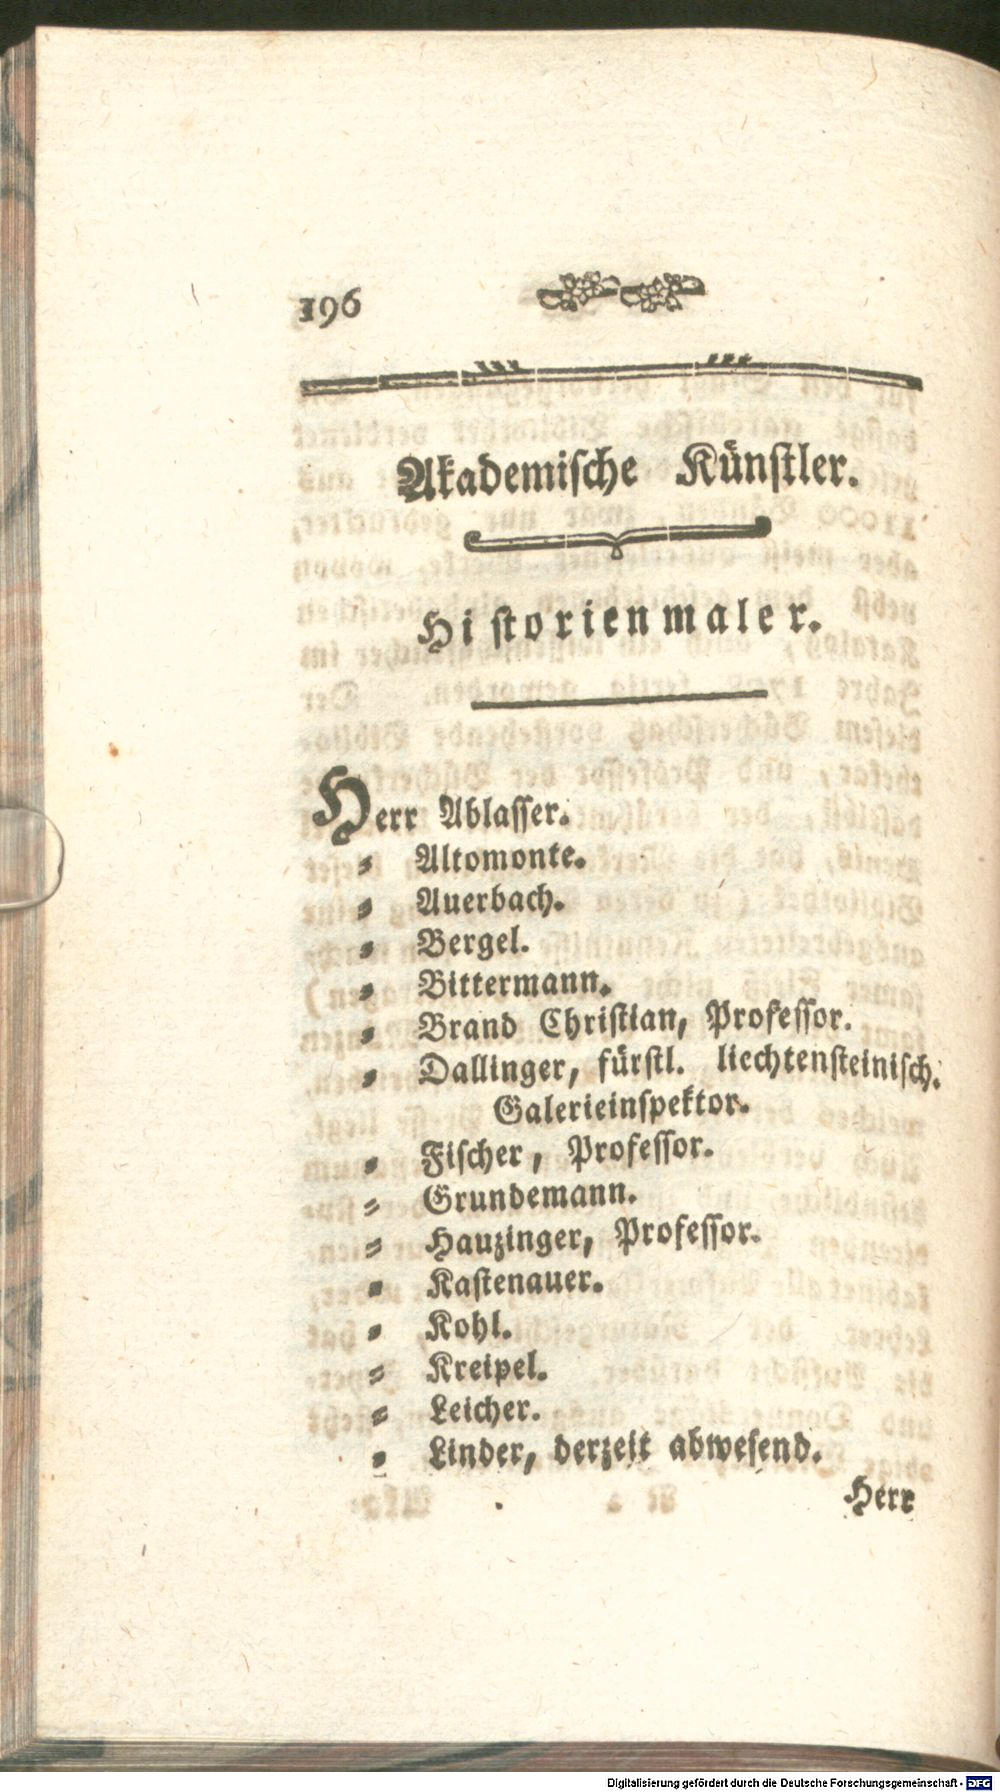 196
Akademische Künstler.
Historienmaler.
Herr Ablasser.
= Altomonte.
= Auerbach.
= Bergel.
= Bittermann.
= Brand Christian, Professor.
= Dallinger, fürstl. liechtensteinisch.
Galerieinspektor.
= Fischer, Professor.
= Grundemann.
= Hauzinger, Professor.
= Kastenauer.
= Kohl.
= Kreipel.
= Leicher.
= Linder, derzeit abwesend.
Herr
Digitalisierung gefördert durch die Deutsche Forschungsgemeinschaft - DFG